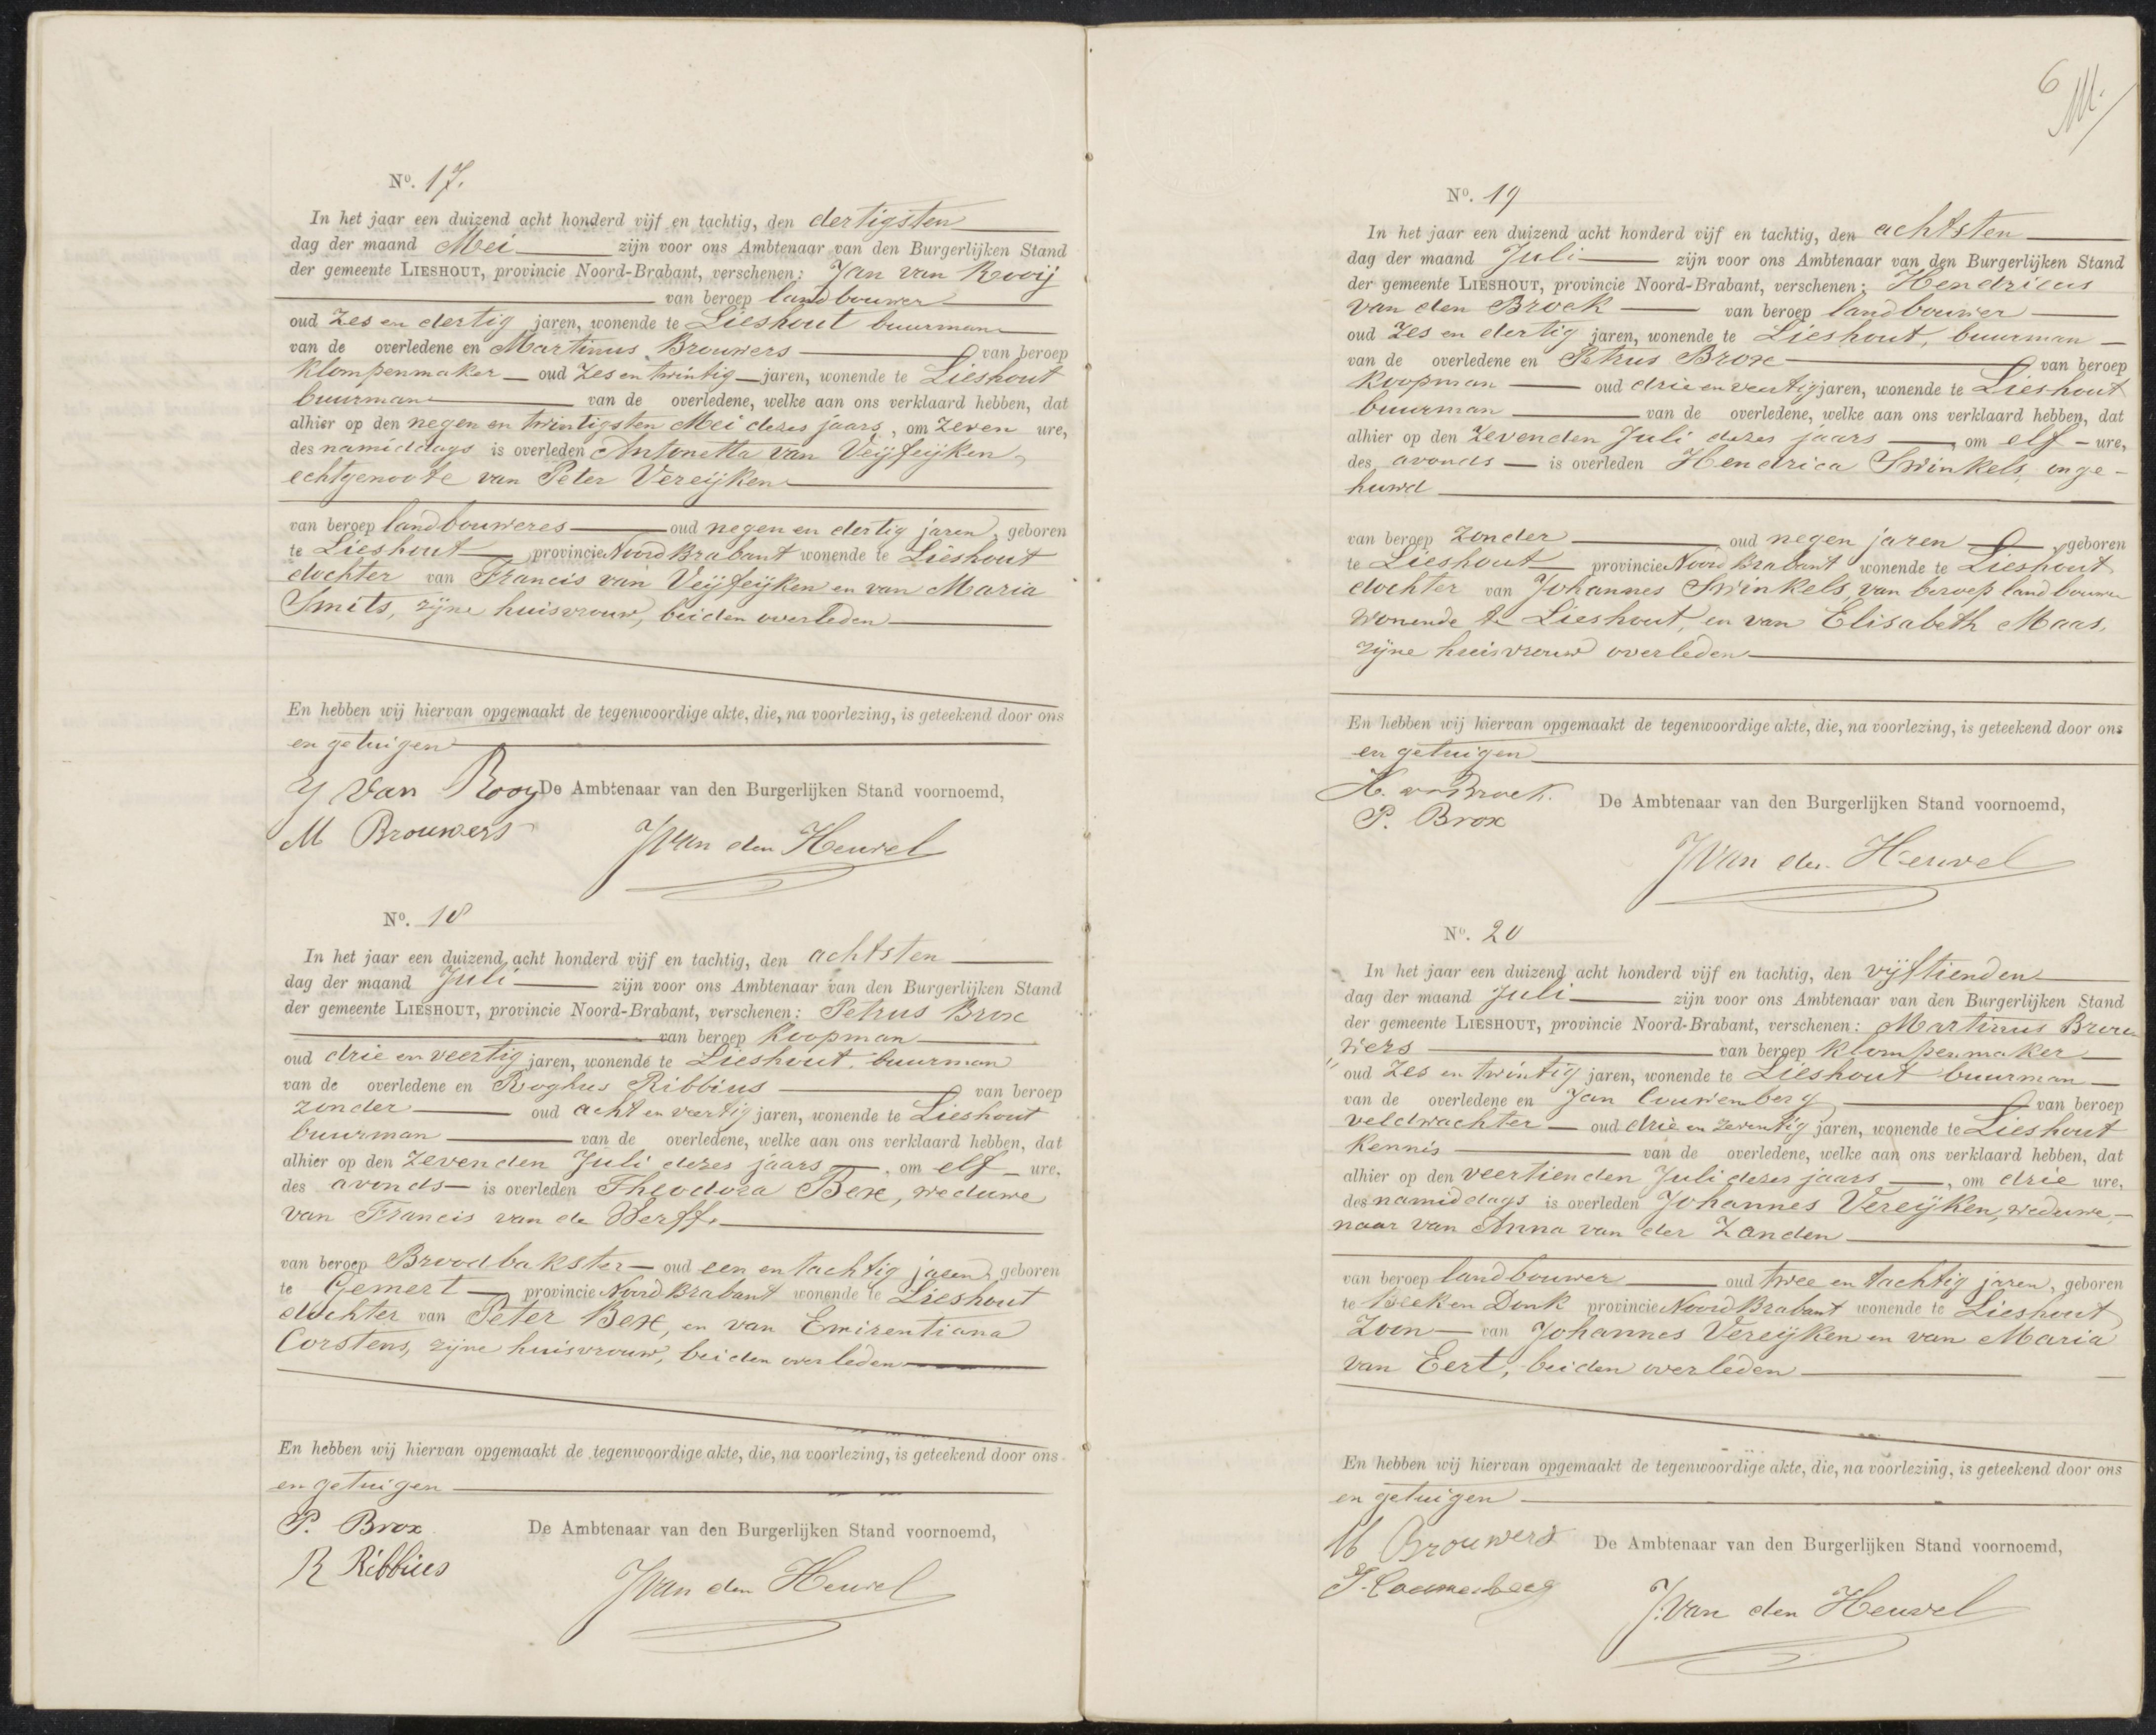 No. 17.
In het jaar een duizend acht honderd vijf en tachtig, den dertigsten
dag der maand Mei zijn voor ons Ambtenaar van den Burgerlijken Stand
der gemeente LIESHOUT, provincie Noord-Brabant, verschenen: Jan van Rooij
van beroep landbouwer
oud zes en dertig jaren, wonende te Lieshout buurman
van de overledene en Martinus Brouwers van beroep
klompenmaker oud zes en twintig jaren, wonende te Lieshout
buurman van de overledene, welke aan ons verklaard hebben, dat
alhier op den negen en twintigsten Mei dezes jaars, om zeven ure,
des namiddags is overleden Antonetta van Veijfeijken,
echtgenoote van Peter Vereijken
van beroep landbouweres oud negen en dertig jaren, geboren
te Lieshout provincie Noord Brabant wonende te Lieshout
dochter van Francis van Veijfeijken en van Maria
Smits, zijne huisvrouw, beiden overleden
En hebben wij hiervan opgemaakt de tegenwoordige akte, die, na voorlezing, is geteekend door ons
en getuigen
J van Rooy De Ambtenaar van den Burgerlijken Stand voornoemd,
M Brouwers JVan den Heuvel
No. 18
In het jaar een duizend acht honderd vijf en tachtig, den achtsten
dag der maand Juli zijn voor ons Ambtenaar van den Burgerlijken Stand
der gemeente LIESHOUT, provincie Noord-Brabant, verschenen: Petrus Brox
van beroep koopman
oud drie en veertig jaren, wonende te Lieshout, buurman
van de overledene en Roghus Ribbius van beroep
zonder oud acht en veertig jaren, wonende te Lieshout
buurman van de overledene, welke aan ons verklaard hebben, dat
alhier op den zevenden Juli dezes jaars, om elf ure,
des avonds is overleden Theodora Bex, weduwe
van Francis van de Werff.
van beroep Broodbakster oud een en tachtig jaren, geboren
te Gemert provincie Noord Brabant wonende te Lieshout
dochter van Peter Bex, en van Emirentiana
Corstens, zijne huisvrouw, beiden overleden
En hebben wij hiervan opgemaakt de tegenwoordige akte, die, na voorlezing, is geteekend door ons
en getuigen
P. Brox De Ambtenaar van den Burgerlijken Stand voornoemd,
R Ribbius JVan den Heuvel
6
No. 19
In het jaar een duizend acht honderd vijf en tachtig, den achtsten
dag der maand Juli zijn voor ons Ambtenaar van den Burgerlijken Stand
der gemeente LIESHOUT, provincie Noord-Brabant, verschenen: Hendricus
van den Broek van beroep landbouwer
oud zes en dertig jaren, wonende te Lieshout, buurman
van de overledene en Petrus Brox van beroep
koopman oud drie en veertig jaren, wonende te Lieshout
buurman van de overledene, welke aan ons verklaard hebben, dat
alhier op den zevenden Juli dezes jaars, om elf ure,
des avonds is overleden Hendrica Swinkels, onge-
huwd
van beroep zonder oud negen jaren, geboren
te Lieshout provincie Noord Brabant wonende te Lieshout
dochter van Johannes Swinkels, van beroep landbouwer
wonende te Lieshout, en van Elisabeth Maas,
zijne huisvrouw overleden
En hebben wij hiervan opgemaakt de tegenwoordige akte, die, na voorlezing, is geteekend door ons
en getuigen
H. Broek. De Ambtenaar van den Burgerlijken Stand voornoemd,
P. Brox
JVan den Heuvel
No. 20
In het jaar een duizend acht honderd vijf en tachtig, den vijftienden
dag der maand Juli zijn voor ons Ambtenaar van den Burgerlijken Stand
der gemeente LIESHOUT, provincie Noord-Brabant, verschenen: Martinus Brou
wers van beroep klompenmaker
oud zes en twintig jaren, wonende te Lieshout buurman
van de overledene en Jan Couwenberg van beroep
veldwachter oud drie en zeventig jaren, wonende te Lieshout
kennis van de overledene, welke aan ons verklaard hebben, dat
alhier op den veertienden Juli dezes jaars, om drie ure,
des namiddags is overleden Johannes Vereijken, weduwe-
naar van Anna van der Zanden
van beroep landbouwer oud twee en tachtig jaren, geboren
te Beek en Donk provincie Noord Brabant wonende te Lieshout
Zoon van Johannes Vereijken en van Maria
van Eert, beiden overleden
En hebben wij hiervan opgemaakt de tegenwoordige akte, die, na voorlezing, is geteekend door ons
en getuigen
M Brouwers De Ambtenaar van den Burgerlijken Stand voornoemd,
J. Van den Heuvel